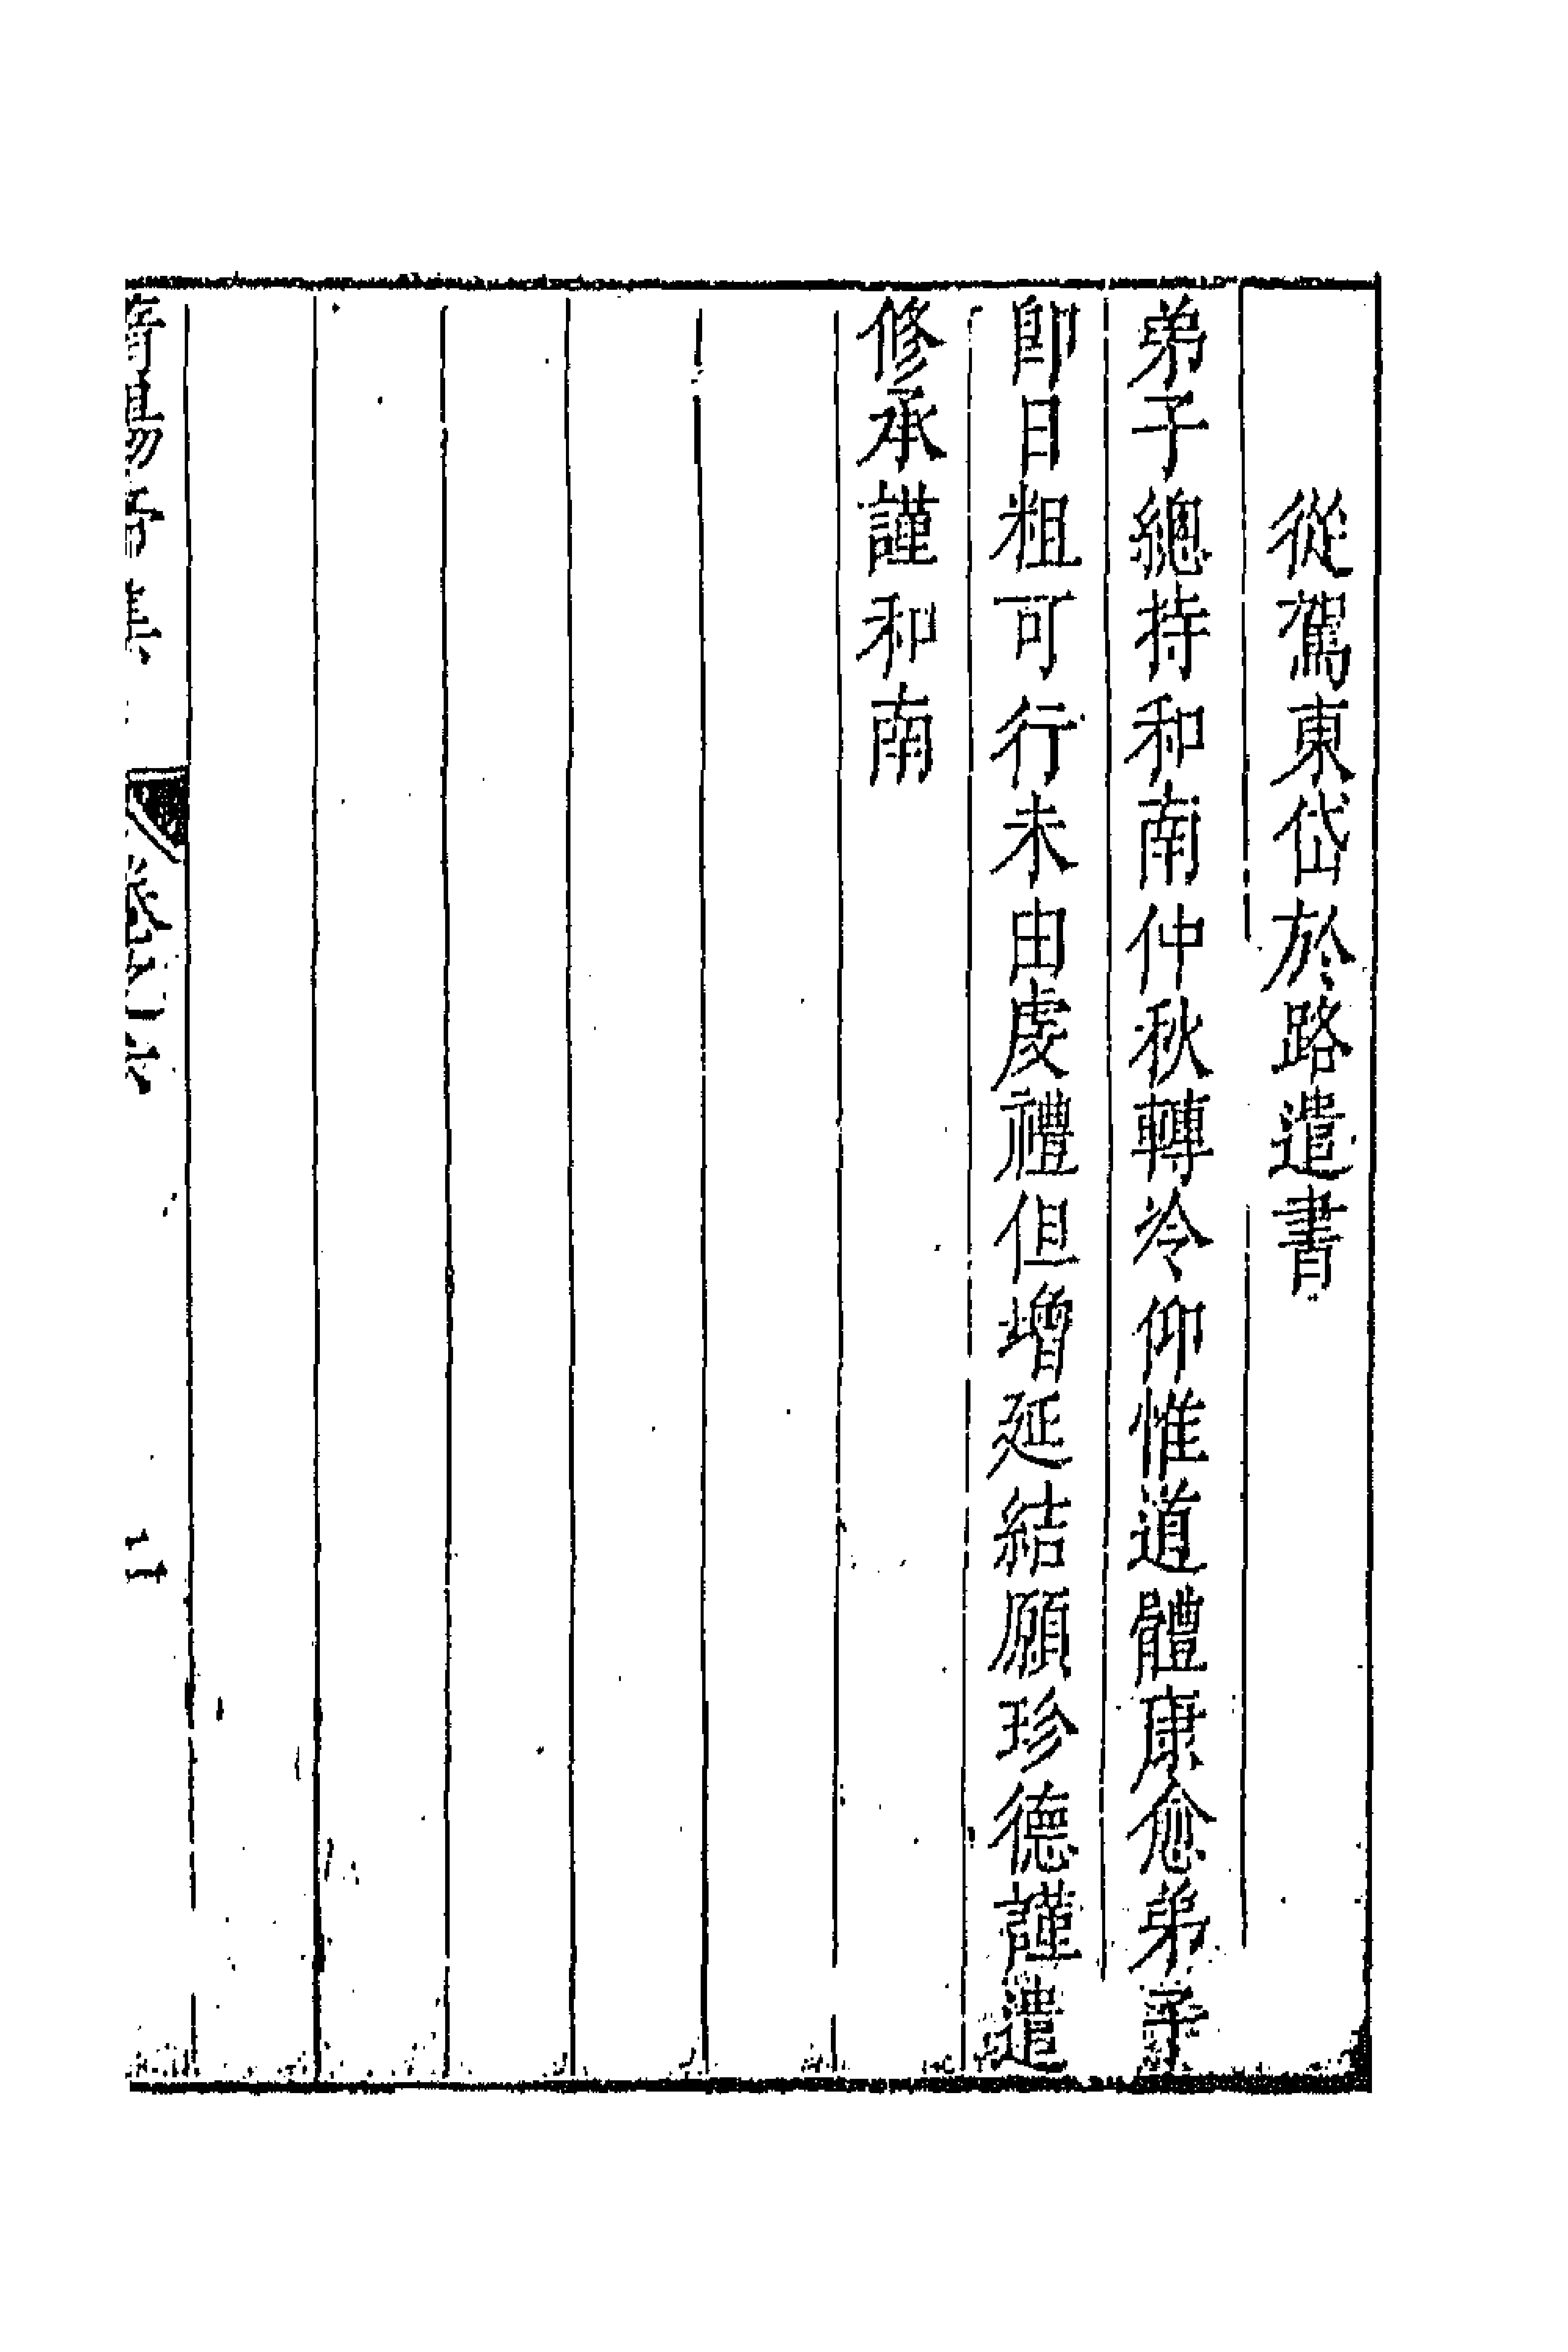 從駕東岱於路遣書
弟子總持和南仲秋轉冷仰惟道體康愈弟子
即目粗可行未由虔禮但增延結願珍德謹遣
修承謹和南